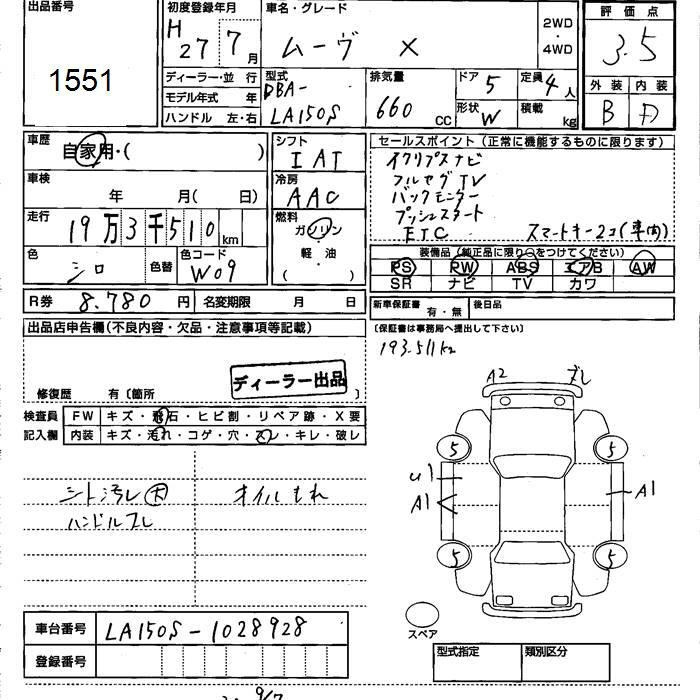 出品番号
1551
初度登録年月
H 27 7 月
車名・グレード
ムーヴ X
2WD
・
4WD
評価点
3.5
外装 内装
B D
ディーラー・並 行
モデル年式 年
ハンドル 左・右
型式
DBA-
LA150S
排気量
660 CC
ドア 5
形状 W
定員 4 人
積載 kg
車歴
自家用・( )
車検
年 月( 日)
走行
19万3千510 km
色
シロ
色替
色コード
W09
シフト
IAT
冷房
AAC
燃料
ガソリン
・
軽油
( )
セールスポイント(正常に機能するものに限ります)
イクリプスナビ
フルセグTV
バックモニター
プッシュスタート
ETC スマートキー2コ(車内)
装備品(純正品に限り○をつけてください)
PS PW ABS エアB AW
SR ナビ TV カワ
R券 8.780 円
名変期限 月 日
新車保証書 有・無
後日品
(保証書は事務局へ提出して下さい)
193.511km
出品店申告欄(不良内容・欠品・注意事項等記載)
ディーラー出品
修復歴 有〔箇所 〕
検査員
記入欄
FW キズ・飛石・ヒビ割・リペア跡・X要
内装 キズ・汚れ・コゲ・穴・スレ・キレ・破レ
シート汚レ大 オイルもれ
ハンドルスレ
A2 ズレ
5 5
U1
A1 A1
5 5
スペア
車台番号 LA150S-1028928
登録番号
型式指定 類別区分